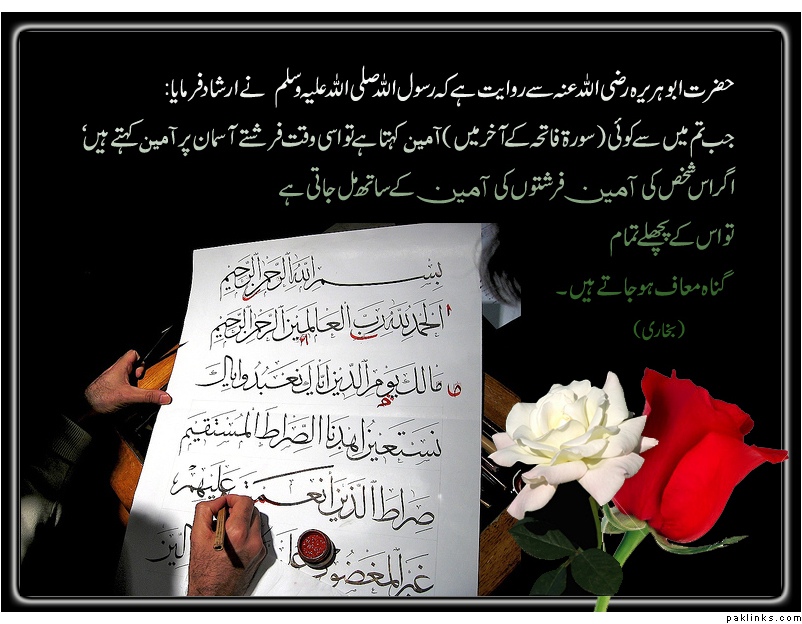 حضرت ابو ہریرہ رضی اللہ عنہ سے روایت ہے کہ رسول اللہ صلی اللہ علیہ وسلم نے ارشاد فرمایا:
جب تم میں سے کوئی (سورۃ فاتحہ کے آخر میں) آمین کہتا ہے تو اسی وقت فرشتے آسمان پر آمین کہتے ہیں‘
اگر اس شخص کی آمین فرشتوں کی آمین کے ساتھ مل جاتی ہے
تو اس کے پچھلے تمام
گناہ معاف ہو جاتے ہیں۔
(بخاری)
بسم الله الرحمن الرحيم
الحمد لله رب العالمين الرحمن الرحيم
مالك يوم الدين اياك نعبد واياك
نستعين اهدنا الصراط المستقيم
صراط الذين أنعمت عليهم
غير المغضوب
paklinks.com